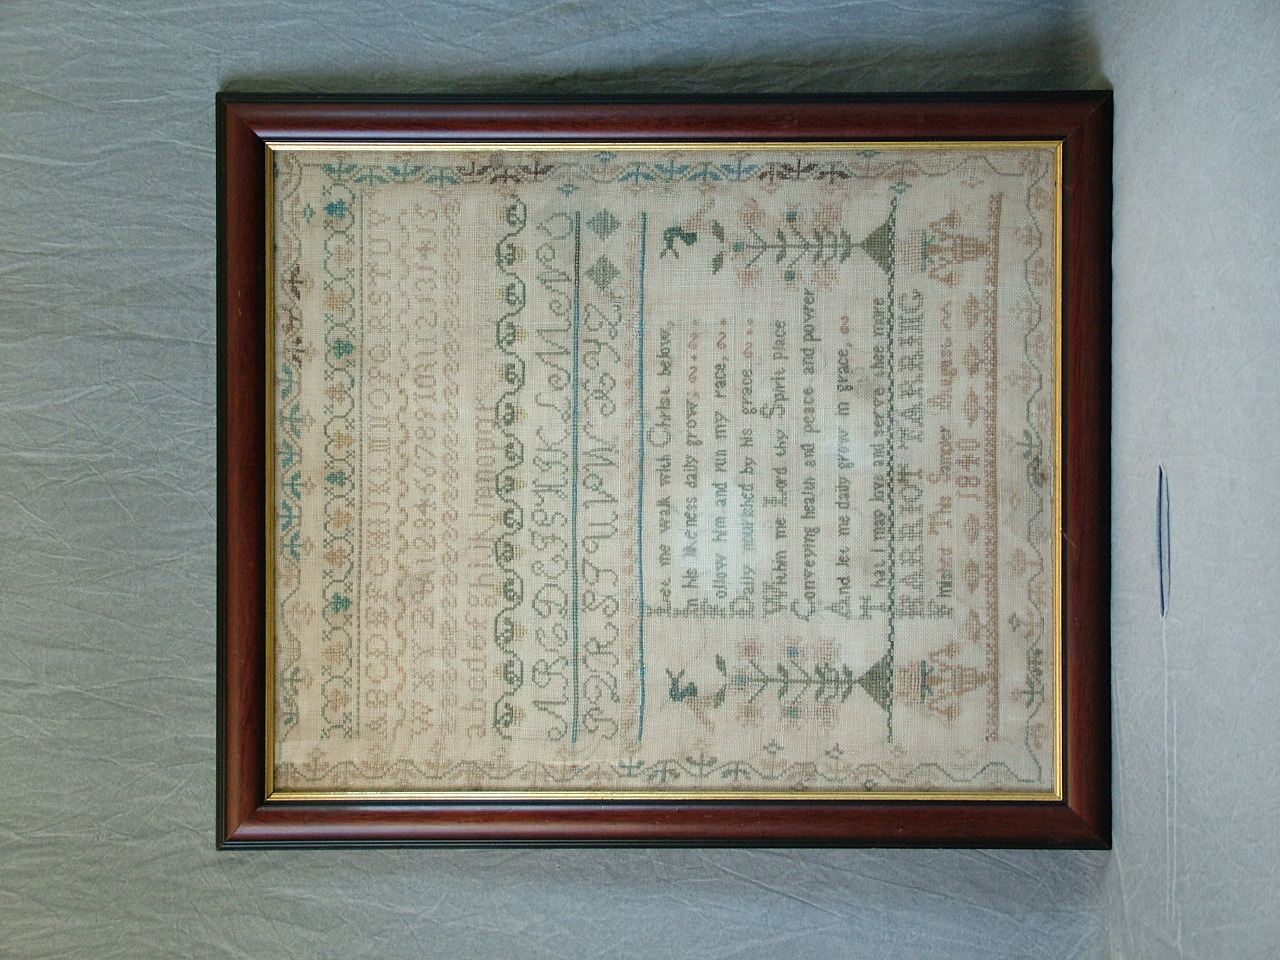 ABCDEFGHIJKLMNOPQRSTUV
WXYZ
abcdefghijklmnopqr
ABCDEFGHIKLMNO
PQRSTUVWXYZ
Let me walk with Christ below,
In his likeness daily grow;
Follow him and run my race,
Daily nourished by his grace
Within me Lord thy Spirit place
Conveying health and peace and power
And let me daily grow in grace,
That I may love and serve thee more
HARRIOT FARRING
Finisted This Sampler August
1840